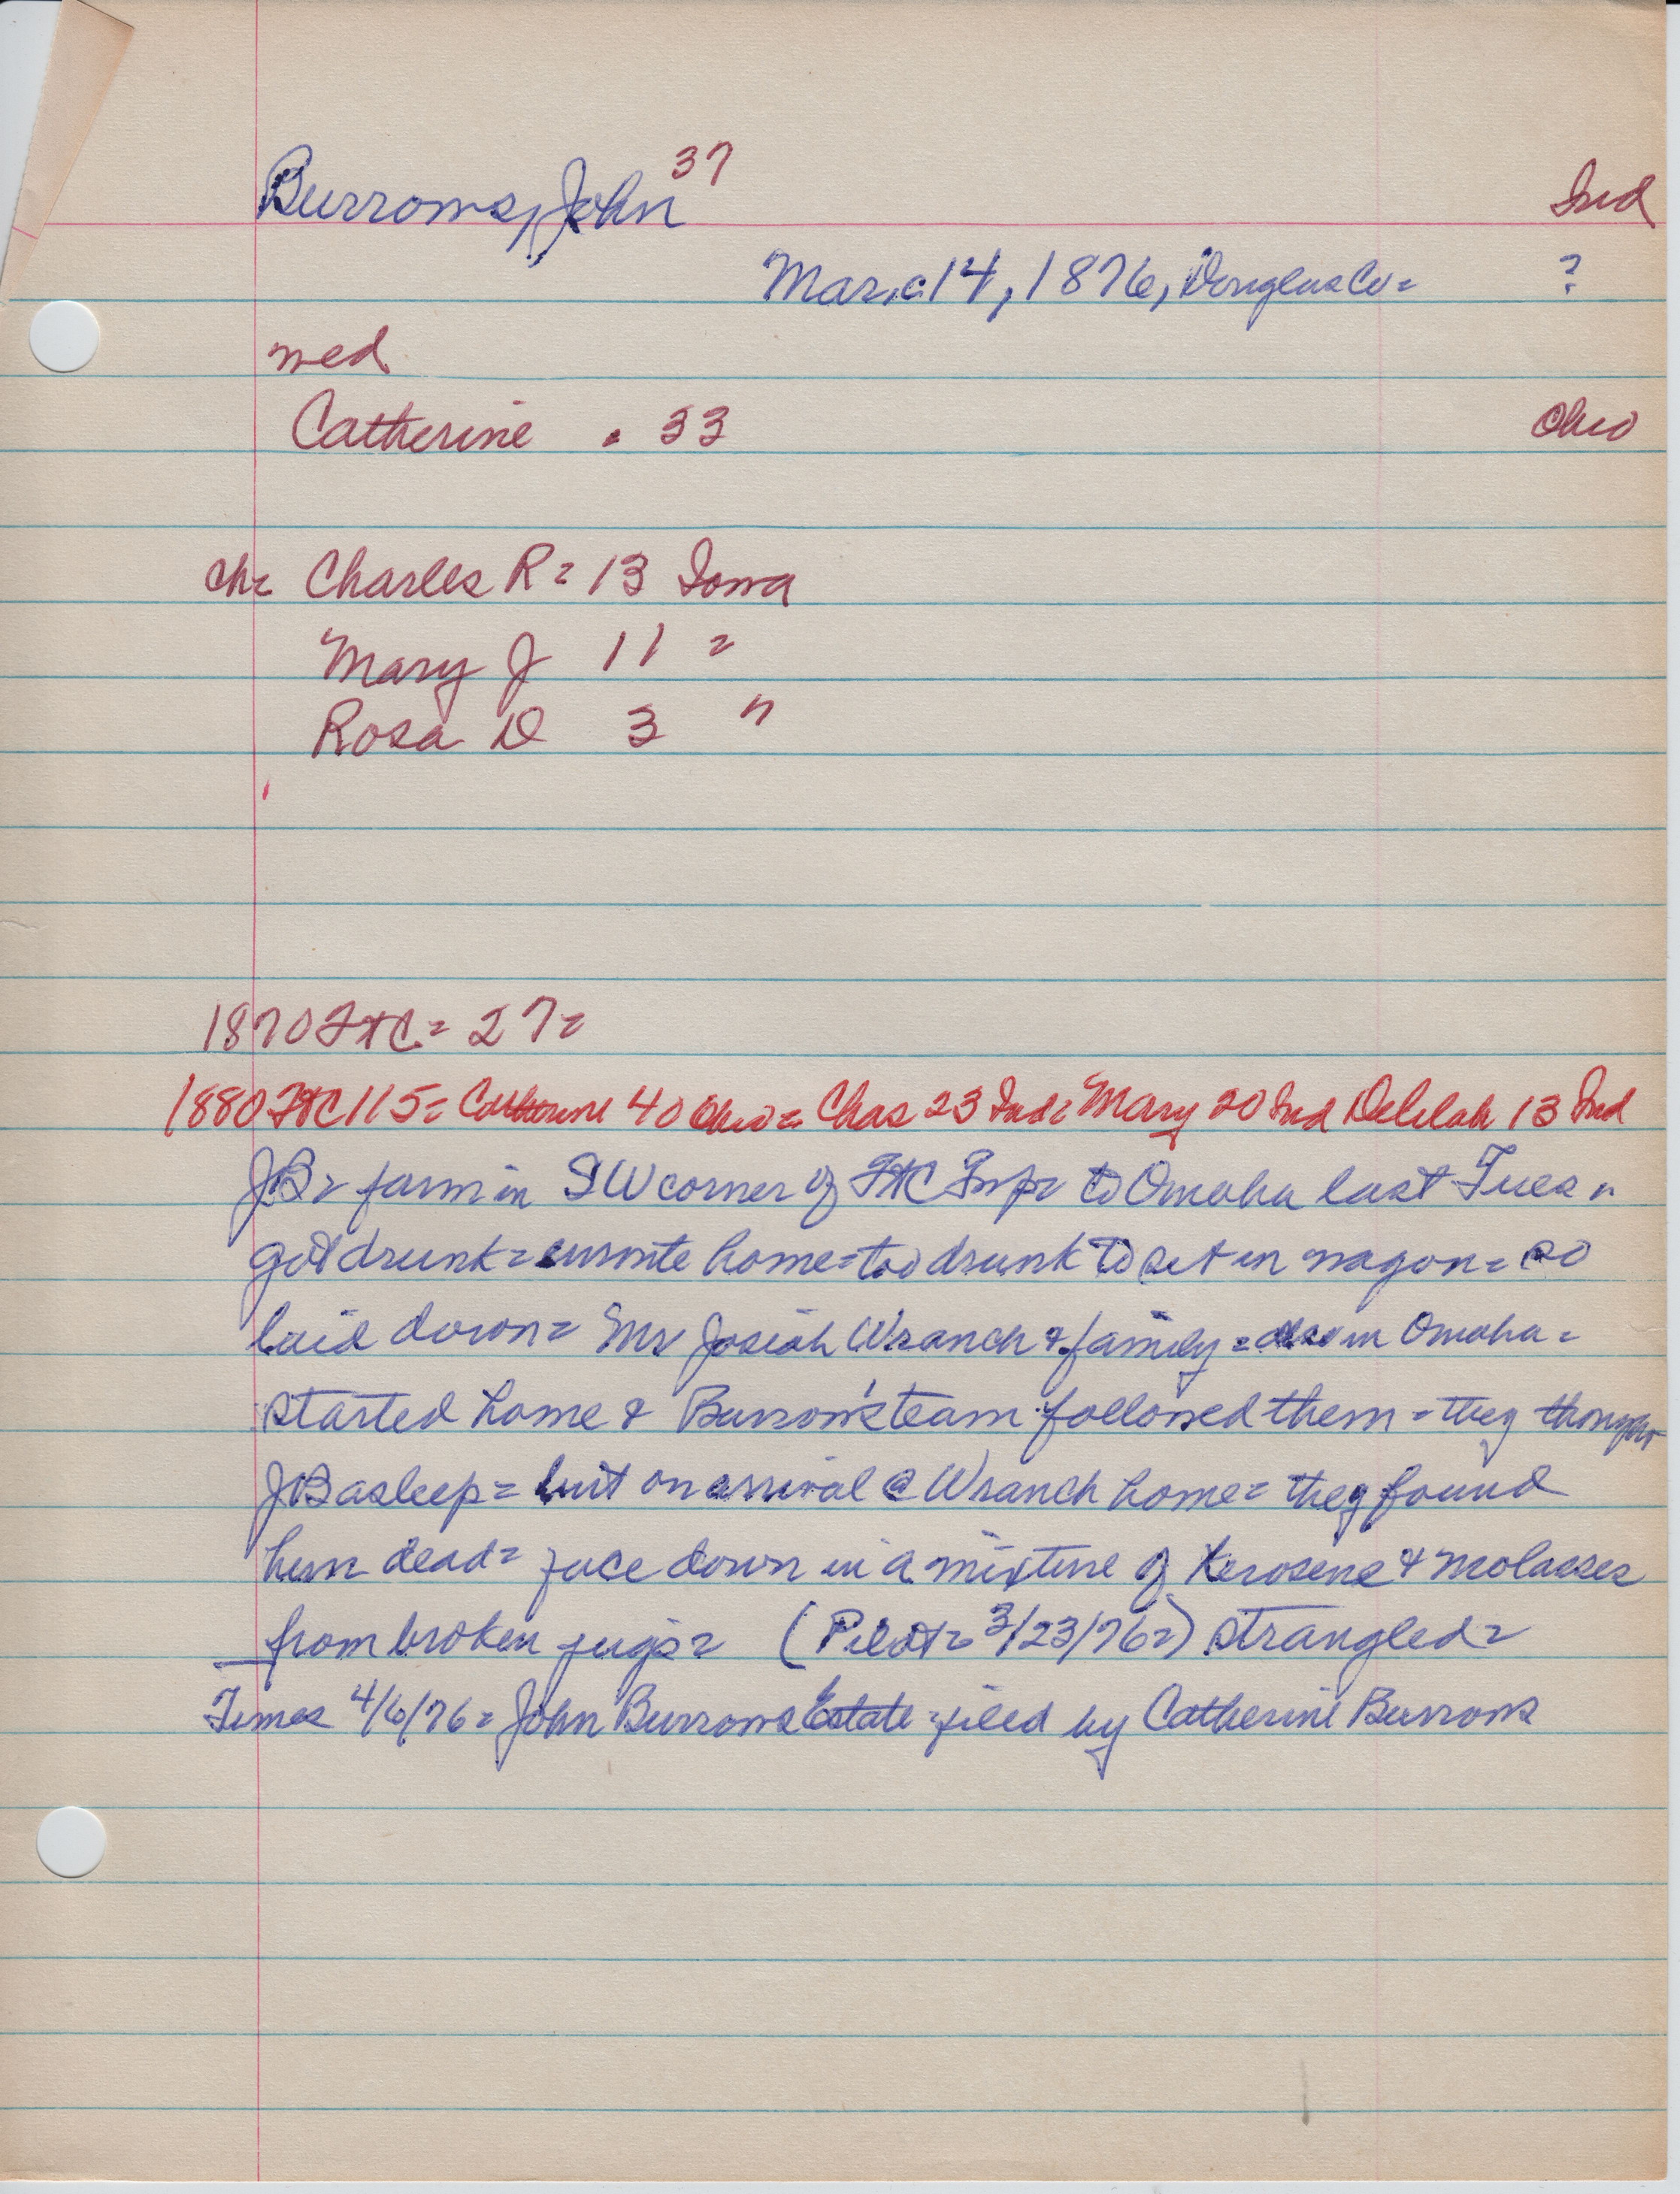 Burrows, John 37 Ind
Mar, c 14, 1876, Douglas Co = ?
wed
Catherine . 33 Ohio
ch= Charles R = 13 Iowa
Mary J 11 "
Rosa D 3 "
1870 FtC = 27 =
1880 FtC 115 = Catherine 40 Ohio = Chas 23 Ind = Mary 20 Ind Delilah 13 Ind
JB = farm in SW corner of FtC Twp = to Omaha last Tues =
got drunk = enroute home = too drunk to set in wagon = so
laid down = Mr Josiah Wranch & family = also in Omaha =
started home & Burrow's team followed them = they thought
JB asleep = but on arrival @ Wranch home = they found
him dead = face down in a mixture of Kerosene & molasses
from broken jugs = (Pilot = 3/23/76 =) strangled =
Times 4/6/76 = John Burrows Estate filed by Catherine Burrows